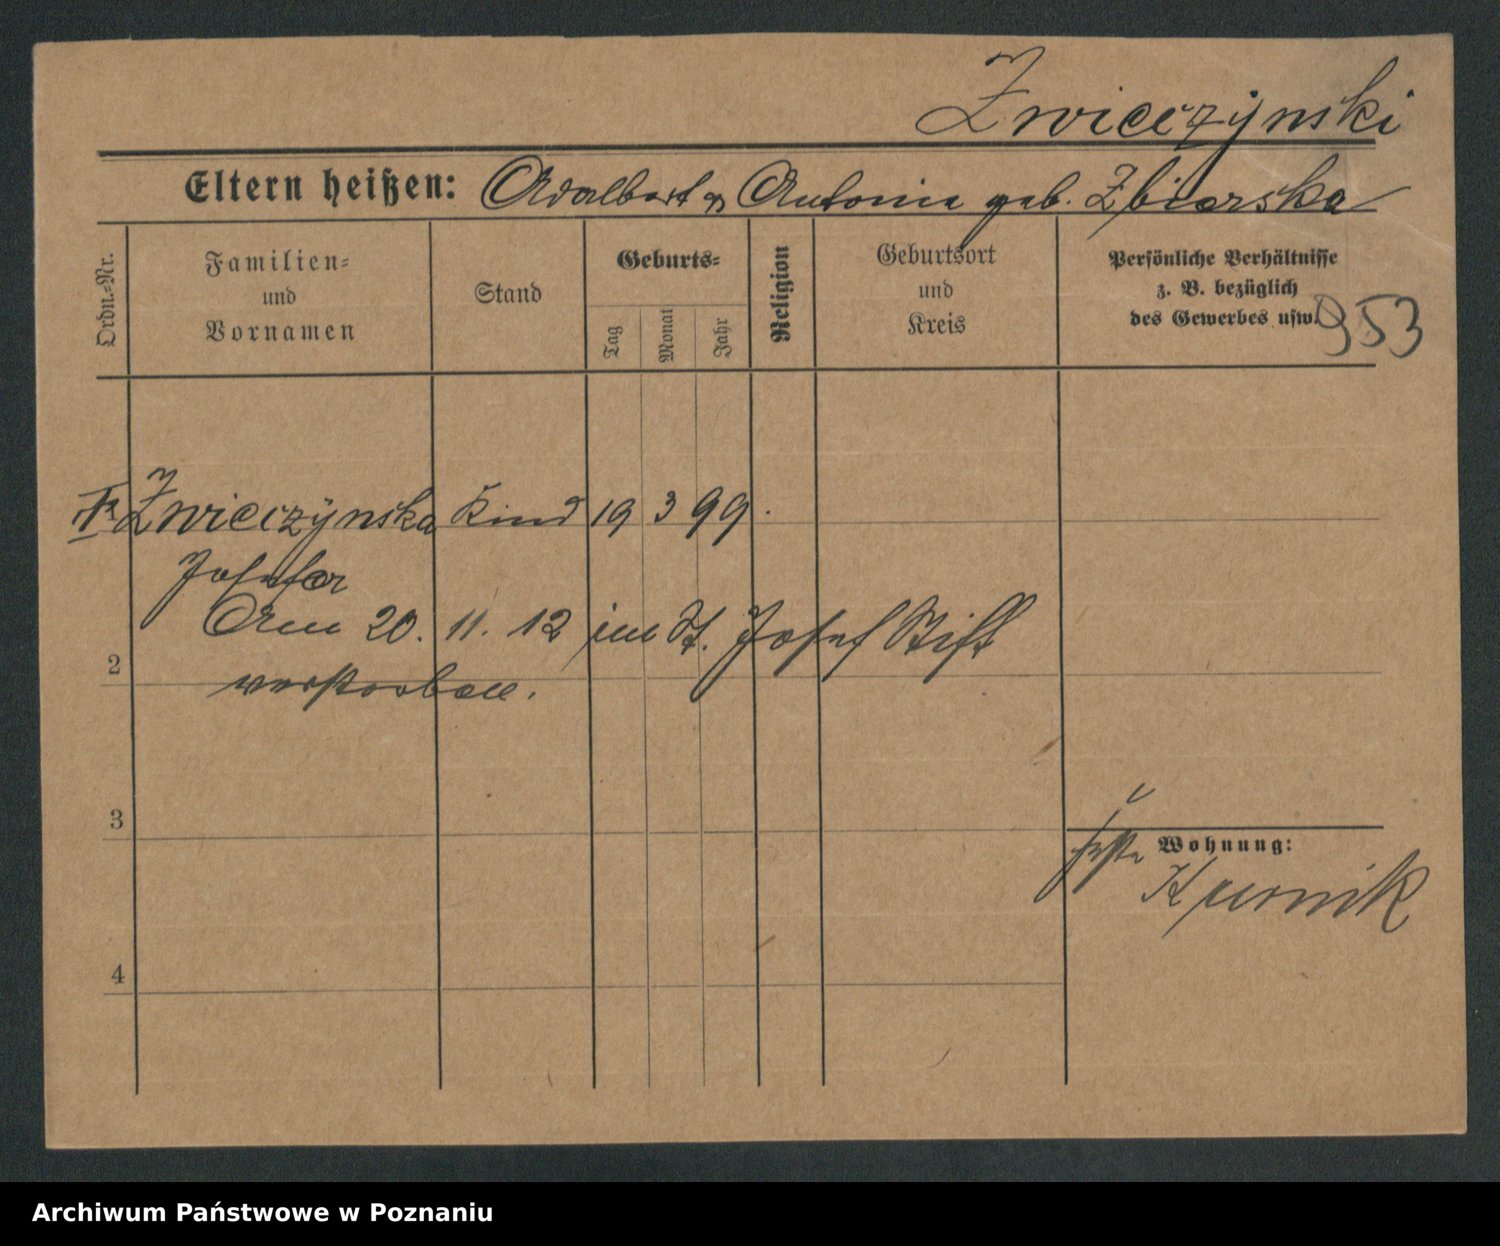 Zwieczynski
Eltern heißen: Adalbert u Antonie geb. Zbierska
Ordn.-Nr.
Familien-
und
Vornamen
Stand
Geburts-
Tag
Monat
Jahr
Religion
Geburtsort
und
Kreis
Persönliche Verhältnisse
z. B. bezüglich
des Gewerbes usw.
953
Zwieczynska Kind 19 3 99
Josefa
Am 20. 11. 12 im St. Josef Stift
2
verstorben.
3
Wohnung:
Kurnik
4
Archiwum Państwowe w Poznaniu